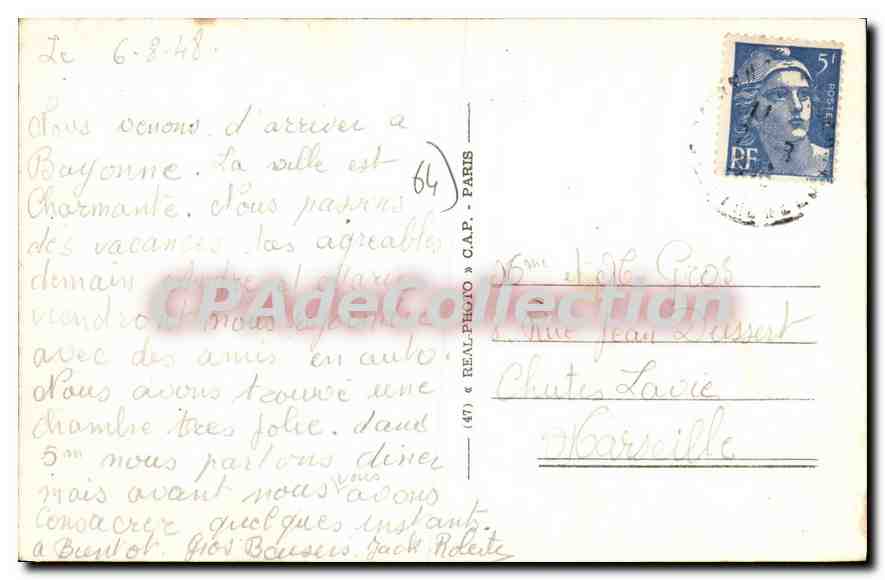 Le 6-8-48.
Nous venons d'arriver a
Bayonne. La ville est
Charmante. Nous passons
des vacances tres agreables
demain et
viendront nous
avec des amis en auto.
Nous avons trouvé une
chambre tres jolie. dans
5m nous partons diner
mais avant nous vous avons
Consacrer quelques instants.
a Bientot. Gros Baisers. Jack Roberte
64
(47) « REAL-PHOTO » C.A.P. - PARIS
5F
POSTES
RF
Mme et M Gros
Rue Jean Dussert
Chutes Lavie
Marseille
CPAdeCollection